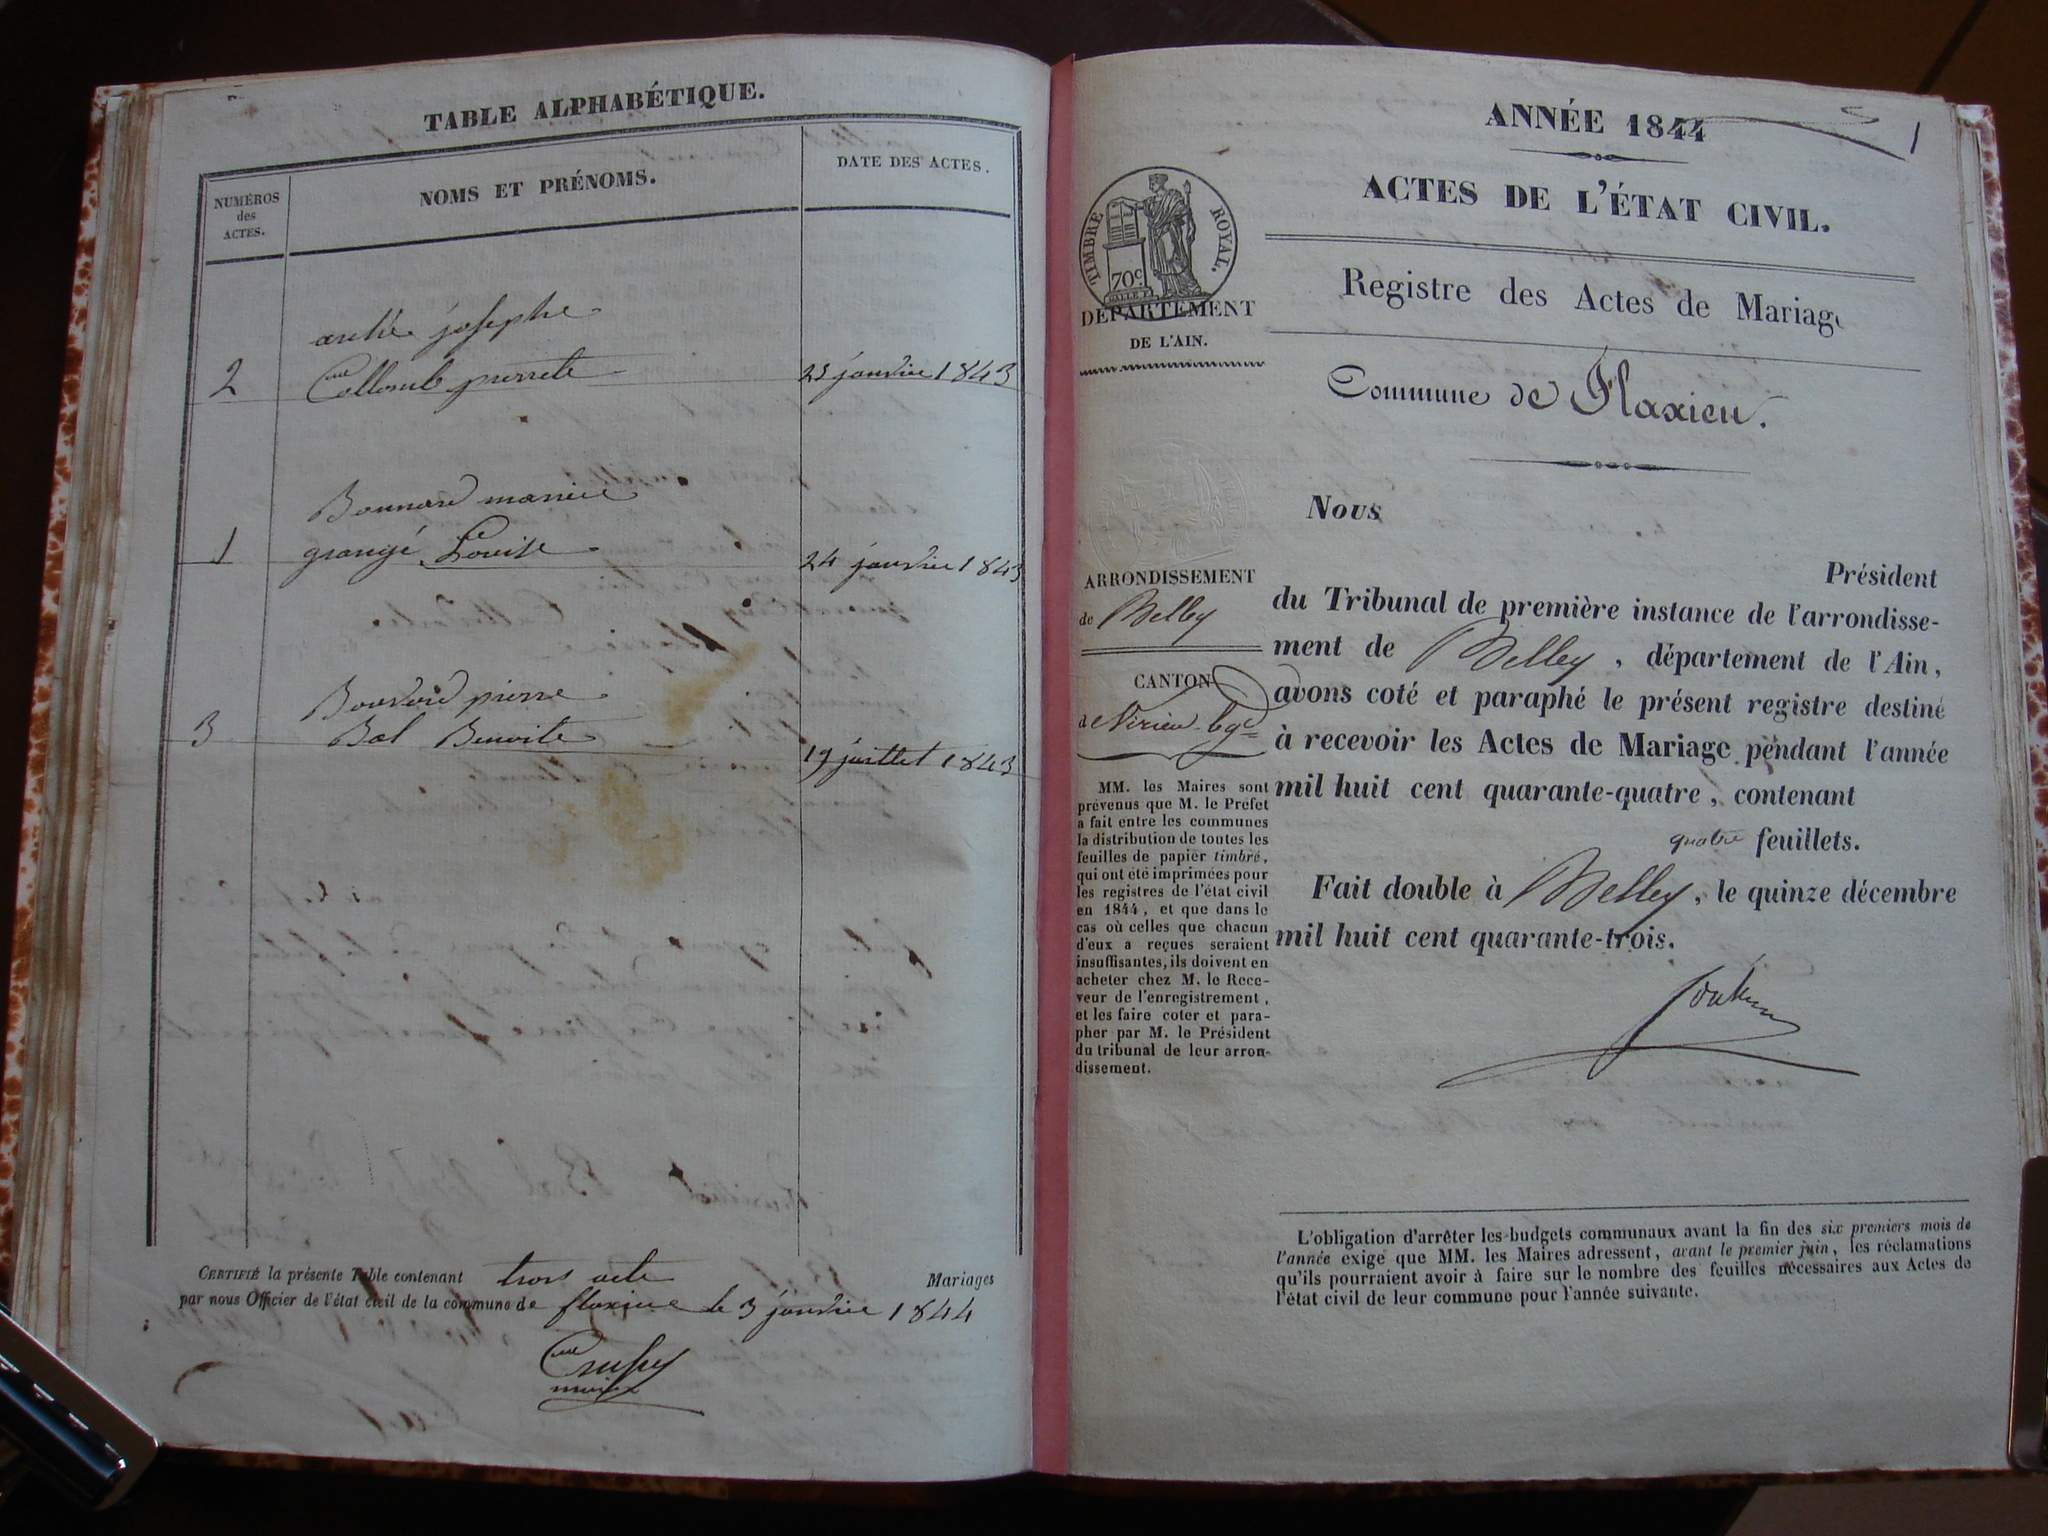 TABLE ALPHABÉTIQUE.
NUMÉROS
des
ACTES.
NOMS ET PRÉNOMS.
DATE DES ACTES.
josephe
2 Collomb pierrete 25 janvier 1843
Bonnard
1 grangé Louise 24 janvier 1843
pierre
3 Bal Benoite 19 juillet 1843
CERTIFIÉ la présente Table contenant trois acte Mariages
par nous Officier de l'état civil de la commune de flaxieu le 3 janvier 1844
ANNÉE 1844
1
ACTES DE L'ÉTAT CIVIL.
TIMBRE ROYAL.
70c
DÉPARTEMENT
DE L'AIN.
Registre des Actes de Mariage
Commune de Flaxieu.
ARRONDISSEMENT
de Belley
CANTON
de Virieu
MM. les Maires sont
prévenus que M. le Préfet
a fait entre les communes
la distribution de toutes les
feuilles de papier timbré,
qui ont été imprimées pour
les registres de l'état civil
en 1844, et que dans le
cas où celles que chacun
d'eux a reçues seraient
insuffisantes, ils doivent en
acheter chez M. le Rece-
veur de l'enregistrement,
et les faire coter et para-
pher par M. le Président
du tribunal de leur arron-
dissement.
Nous
Président
du Tribunal de première instance de l'arrondisse-
ment de Belley, département de l'Ain,
avons coté et paraphé le présent registre destiné
à recevoir les Actes de Mariage pendant l'année
mil huit cent quarante-quatre, contenant
quatre feuillets.
Fait double à Belley, le quinze décembre
mil huit cent quarante-trois.
L'obligation d'arrêter les budgets communaux avant la fin des six premiers mois de
l'année exige que MM. les Maires adressent, avant le premier juin, les réclamations
qu'ils pourraient avoir à faire sur le nombre des feuilles nécessaires aux Actes de
l'état civil de leur commune pour l'année suivante.